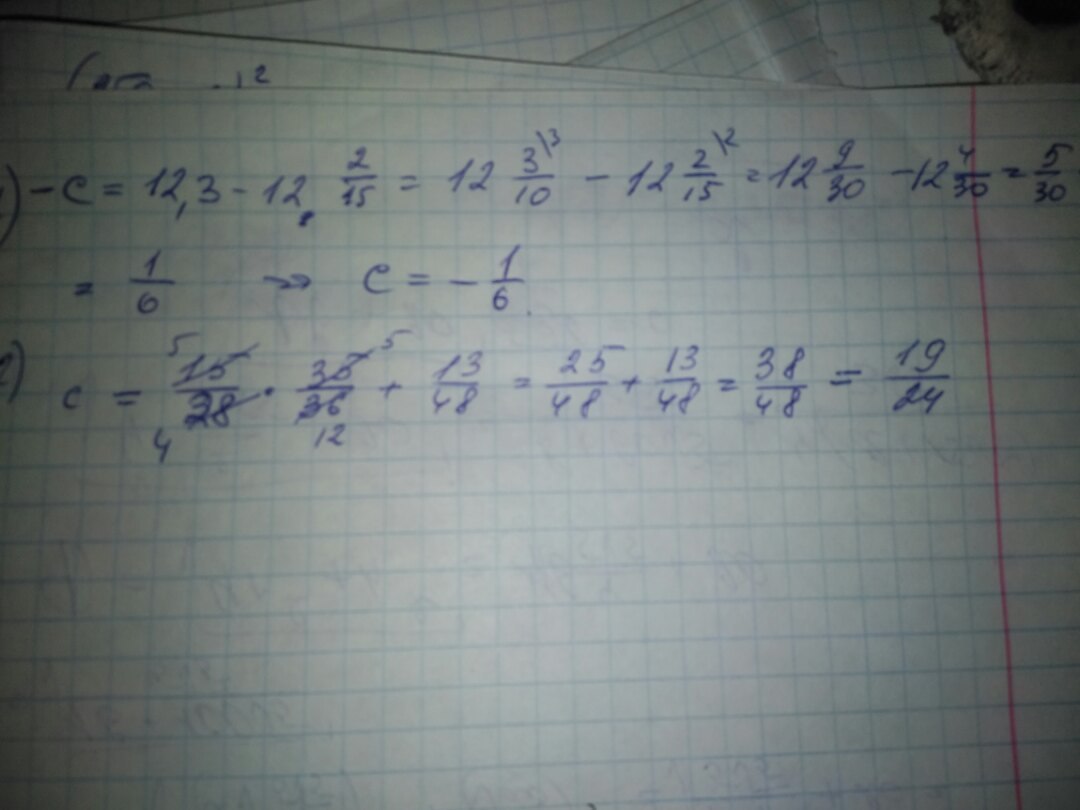 1) - C = 12,3 - 12 2/15 = 12 3/10 \3 - 12 2/15 \2 = 12 9/30 - 12 4/30 = 5/30
= 1/6 → C = - 1/6.
2) c = 15/28 · 35/36 + 13/48 = 25/48 + 13/48 = 38/48 = 19/24
5 5
4 12